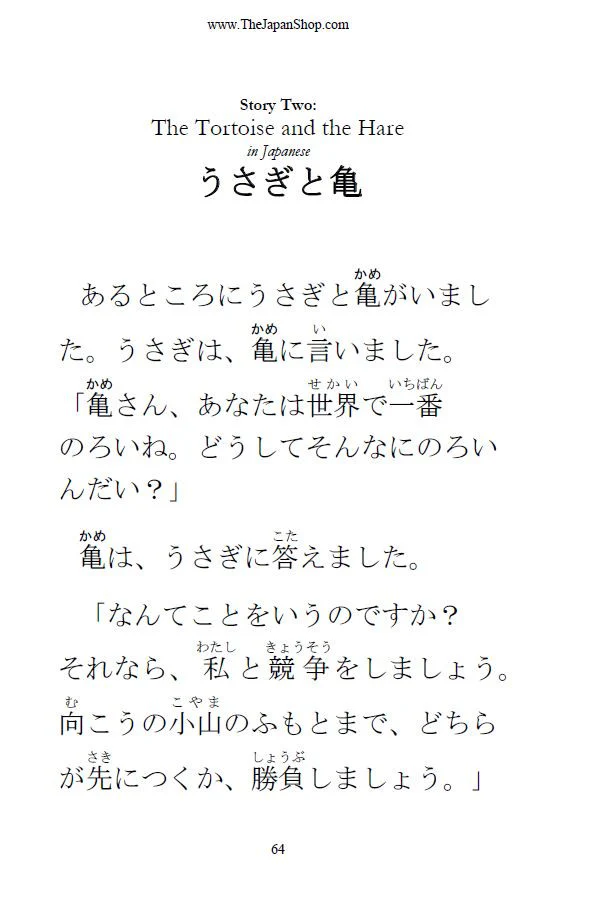 www.TheJapanShop.com
Story Two:
The Tortoise and the Hare
in Japanese
うさぎと亀
かめ
あるところにうさぎと亀がいまし
かめ い
た。うさぎは、亀に言いました。
かめ せかい いちばん
「亀さん、あなたは世界で一番
のろいね。どうしてそんなにのろい
んだい？」
かめ こた
亀は、うさぎに答えました。
「なんてことをいうのですか？
わたし きょうそう
それなら、私と競争をしましょう。
む こやま
向こうの小山のふもとまで、どちら
さき しょうぶ
が先につくか、勝負しましょう。」
64